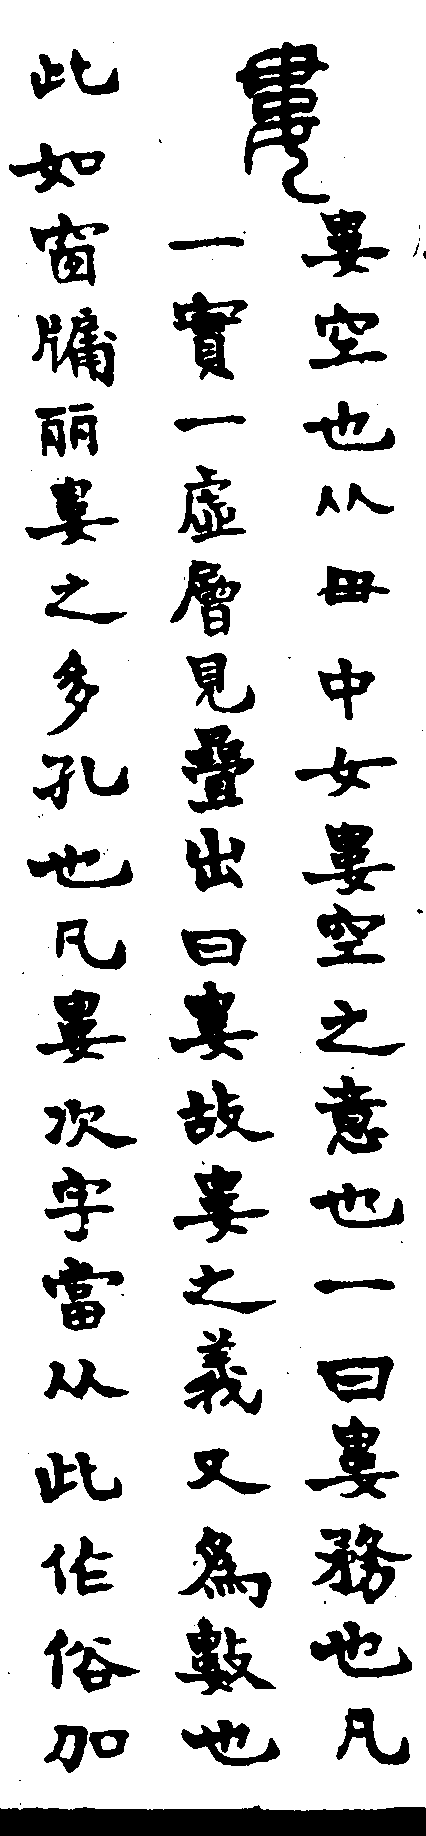 婁
婁空也从毌中女婁空之意也一曰婁務也凡
一實一虛層見疊出曰婁故婁之義又為數也
此如窗牖丽婁之多孔也凡婁次字當从此作俗加